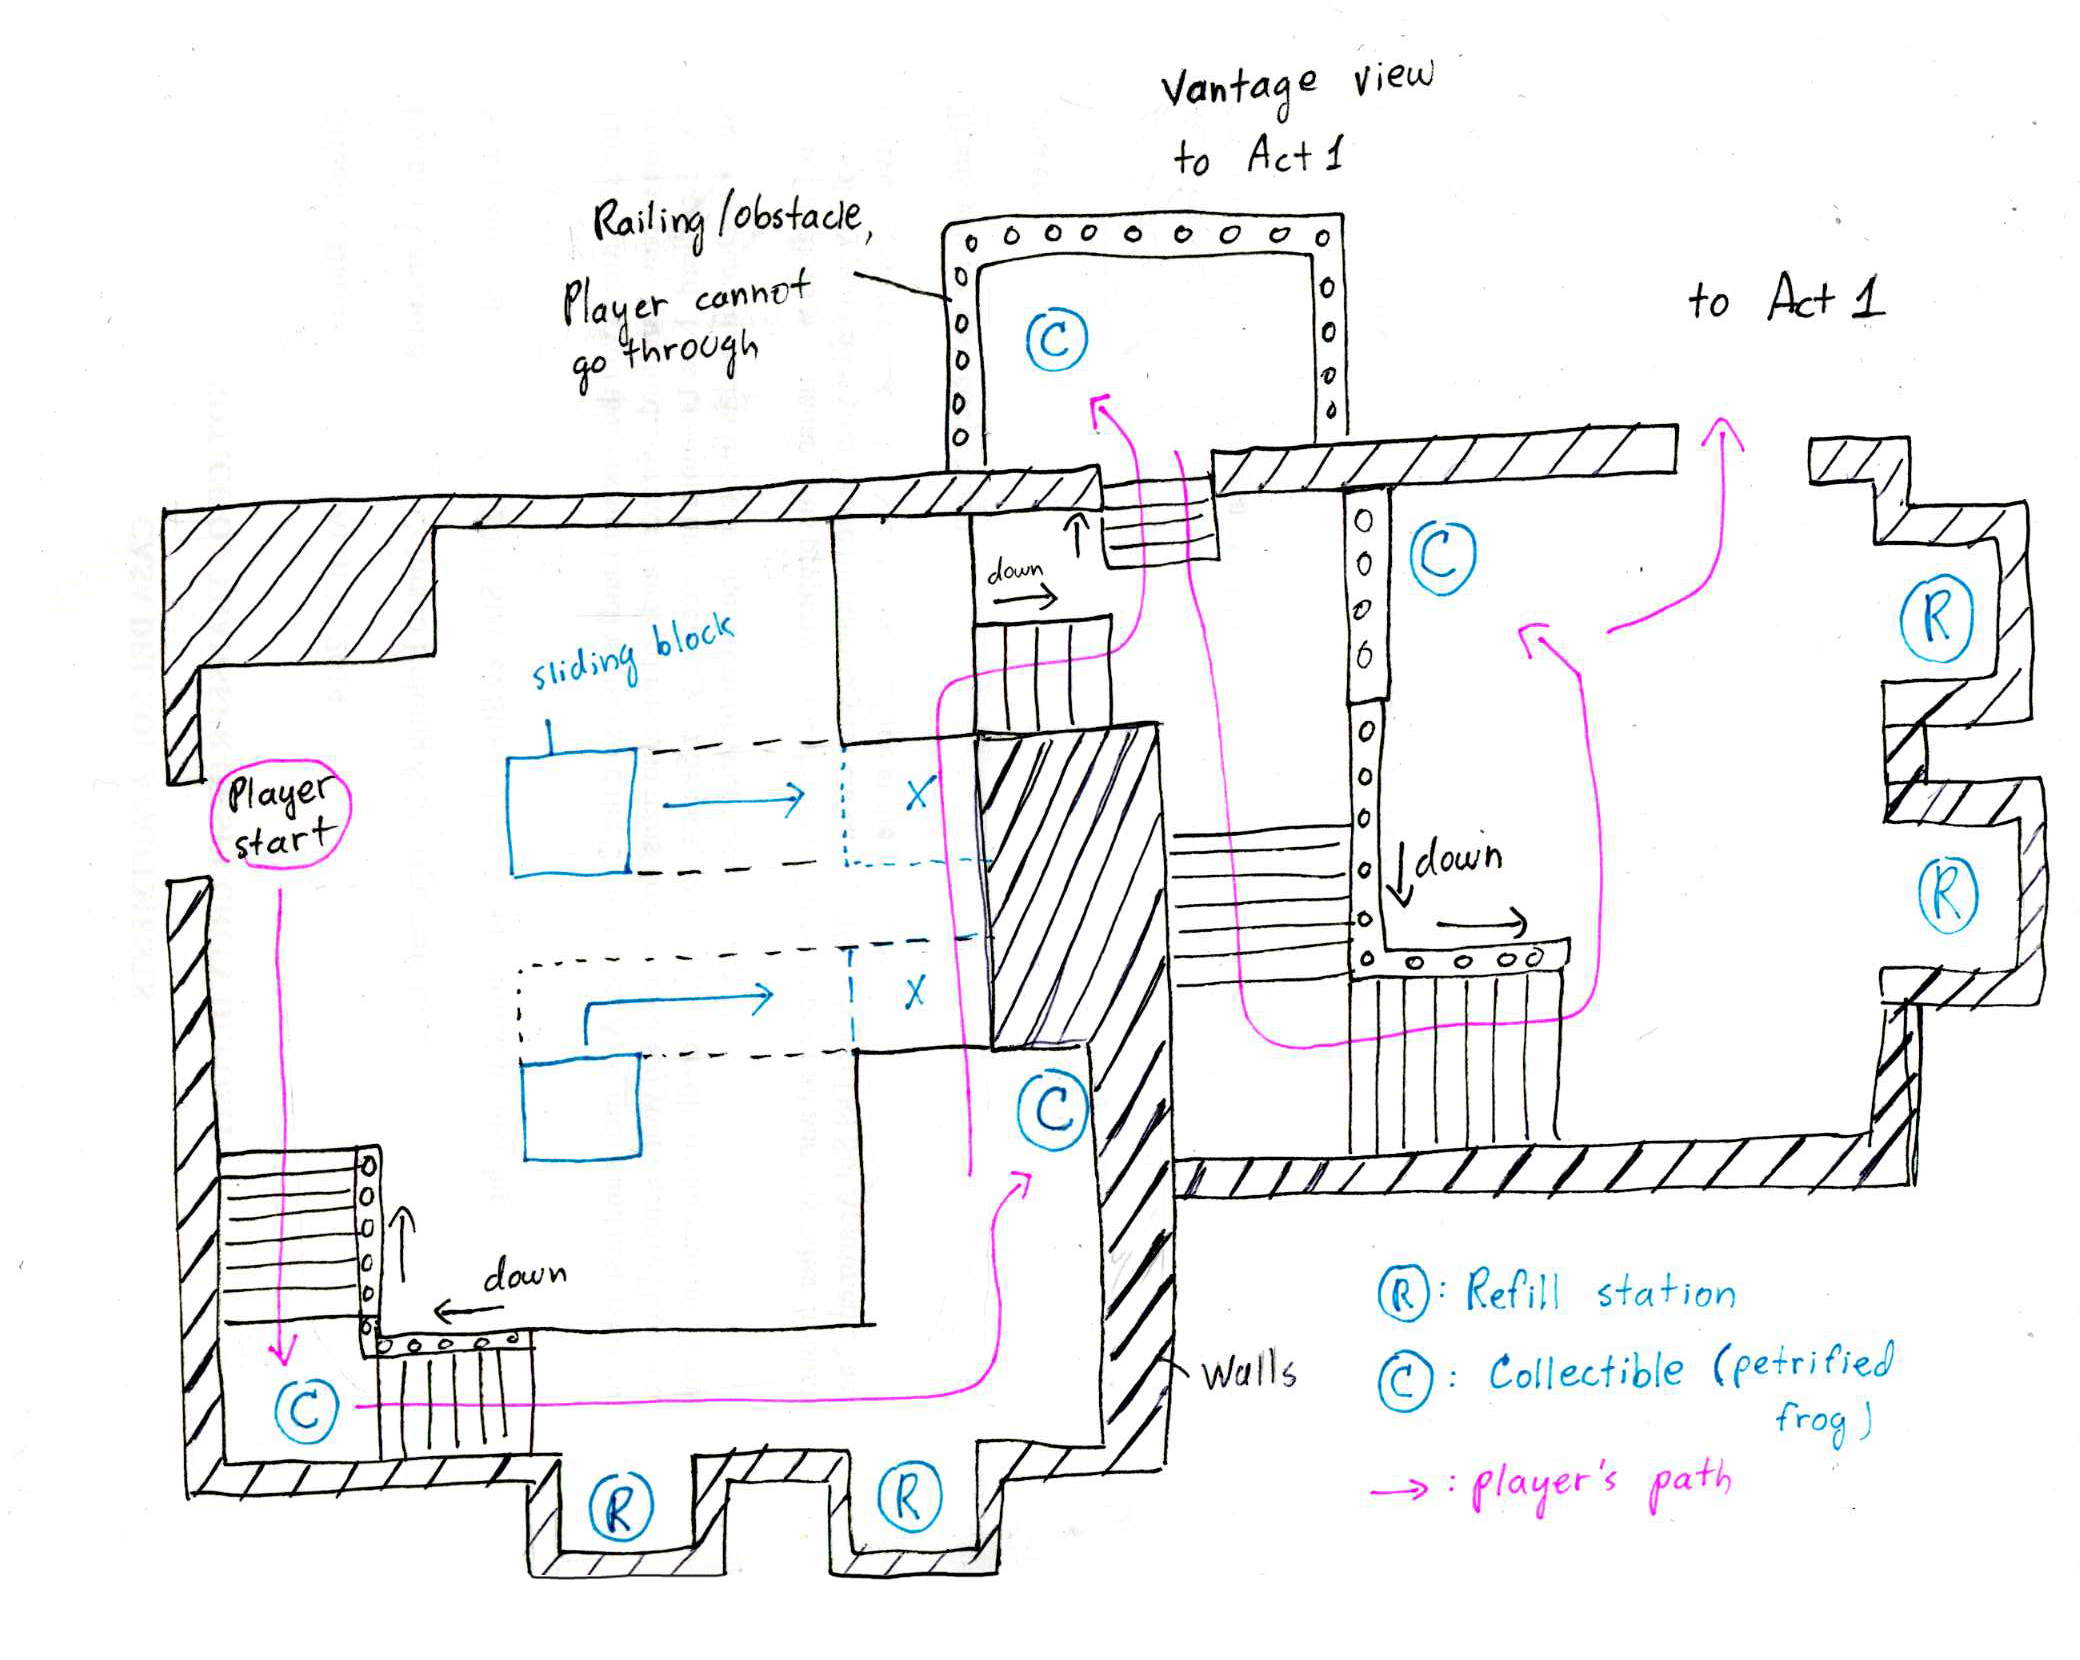 Vantage view
to Act 1
Railing/obstacle,
Player cannot
go through
to Act 1
C
C
down
R
sliding block
Player
start
X
down
R
X
C
down
C
R
R
Walls
R : Refill station
C : Collectible (petrified
frog)
→ : player's path